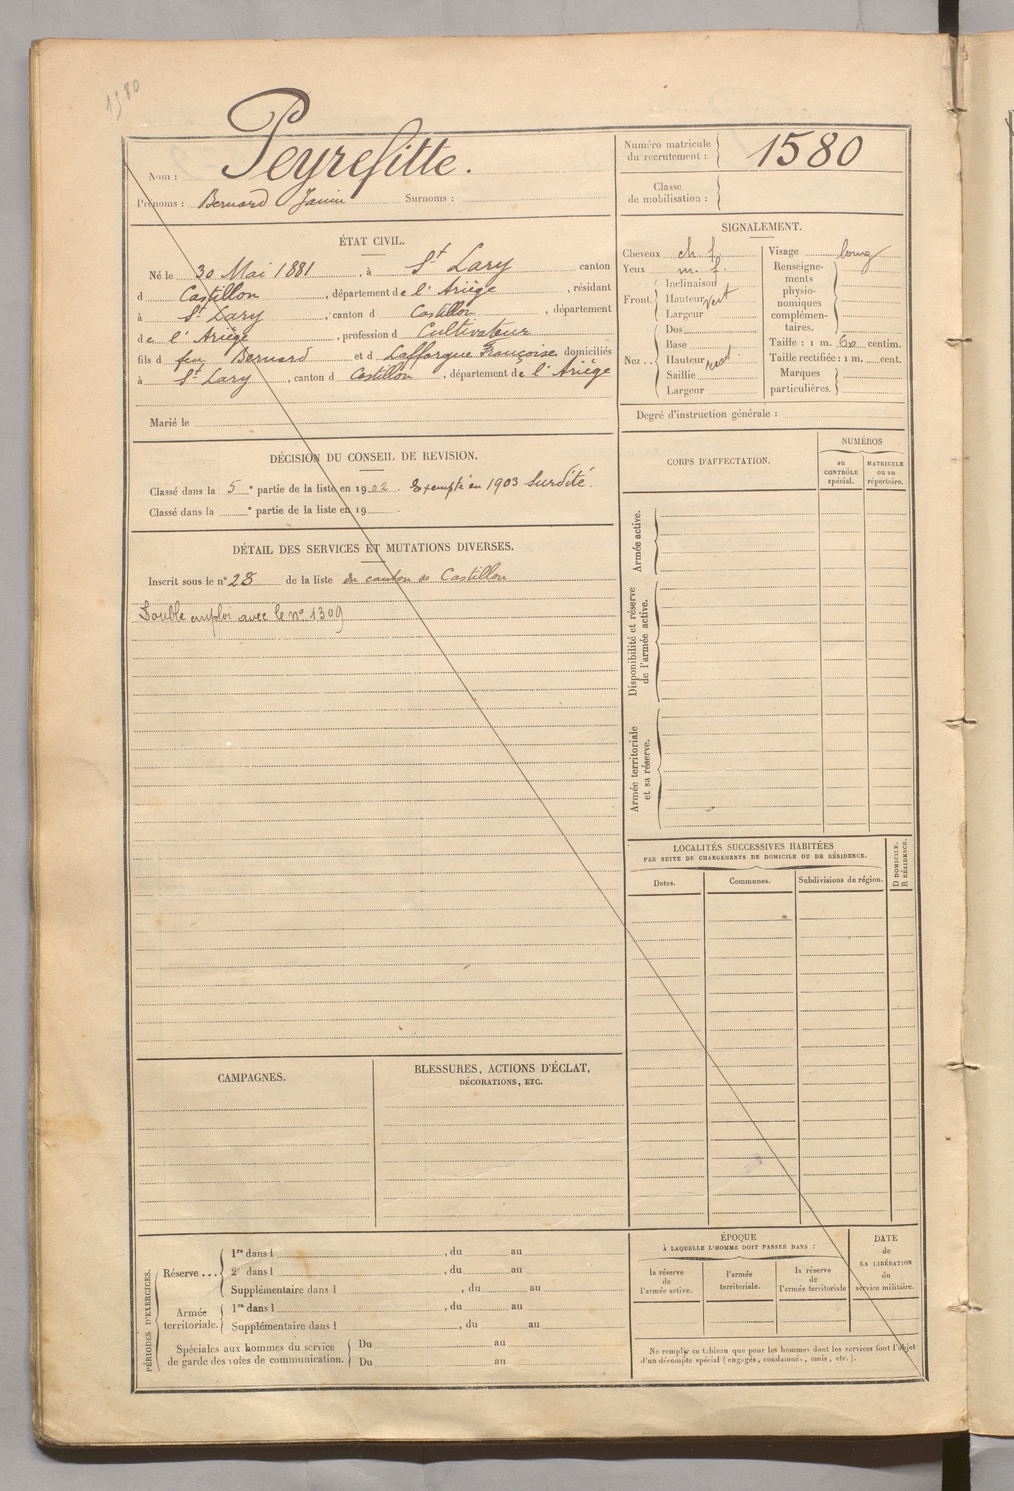 1580
Nom : Peyrefitte.
Prénoms : Bernard Surnoms :
Numéro matricule du recrutement : 1580
Classe de mobilisation :
ÉTAT CIVIL.
Né le 30 Mai 1881, à St Lary canton
d Castillon, département de l'Ariège, résidant
à St Lary, canton d Castillon, département
de l'Ariège, profession d Cultivateur
fils d feu Bernard et d Lafforgue Françoise domiciliés
à St Lary, canton d Castillon, département de l'Ariége
Marié le
DÉCISION DU CONSEIL DE REVISION.
Classé dans la 5e partie de la liste en 1902. Exempté en 1903 Surdité.
Classé dans la e partie de la liste en 19 .
DÉTAIL DES SERVICES ET MUTATIONS DIVERSES.
Inscrit sous le n° 28 de la liste du canton de Castillon
Double emploi avec le n° 1309
CAMPAGNES.
BLESSURES, ACTIONS D'ÉCLAT,
DÉCORATIONS, ETC.
PÉRIODES D'EXERCICES.
Réserve ...
1re dans l , du au
2e dans l , du au
Supplémentaire dans l , du au
Armée territoriale.
1re dans l , du au
Supplémentaire dans l , du au
Spéciales aux hommes du service
de garde des voies de communication.
Du au
Du au
SIGNALEMENT.
Cheveux ch. f.
Yeux m. f.
Front
Inclinaison
Hauteur vert
Largeur
Nez ..
Dos
Base
Hauteur
Saillie
Largeur
Visage long
Renseigne-
ments
physio-
nomiques
complémen-
taires.
Taille : 1 m. 60 centim.
Taille rectifiée : 1 m. cent.
Marques
particulières.
Degré d'instruction générale :
CORPS D'AFFECTATION.
NUMÉROS
au
CONTRÔLE
spécial.
MATRICULE
ou au
répertoire.
Armée active.
Disponibilité et réserve
de l'armée active.
Armée territoriale
et sa réserve.
LOCALITÉS SUCCESSIVES HABITÉES
PAR SUITE DE CHANGEMENTS DE DOMICILE OU DE RÉSIDENCE.
Dates.
Communes.
Subdivisions de région.
D DOMICILE.
R RÉSIDENCE.
ÉPOQUE
À LAQUELLE L'HOMME DOIT PASSER DANS :
la réserve
de
l'armée active.
l'armée
territoriale.
la réserve
de
l'armée territoriale
DATE
de
LA LIBÉRATION
du
service militaire.
Ne remplir ce tableau que pour les hommes dont les services font l'objet
d'un décompte spécial (engagés, condamnés, omis, etc.).